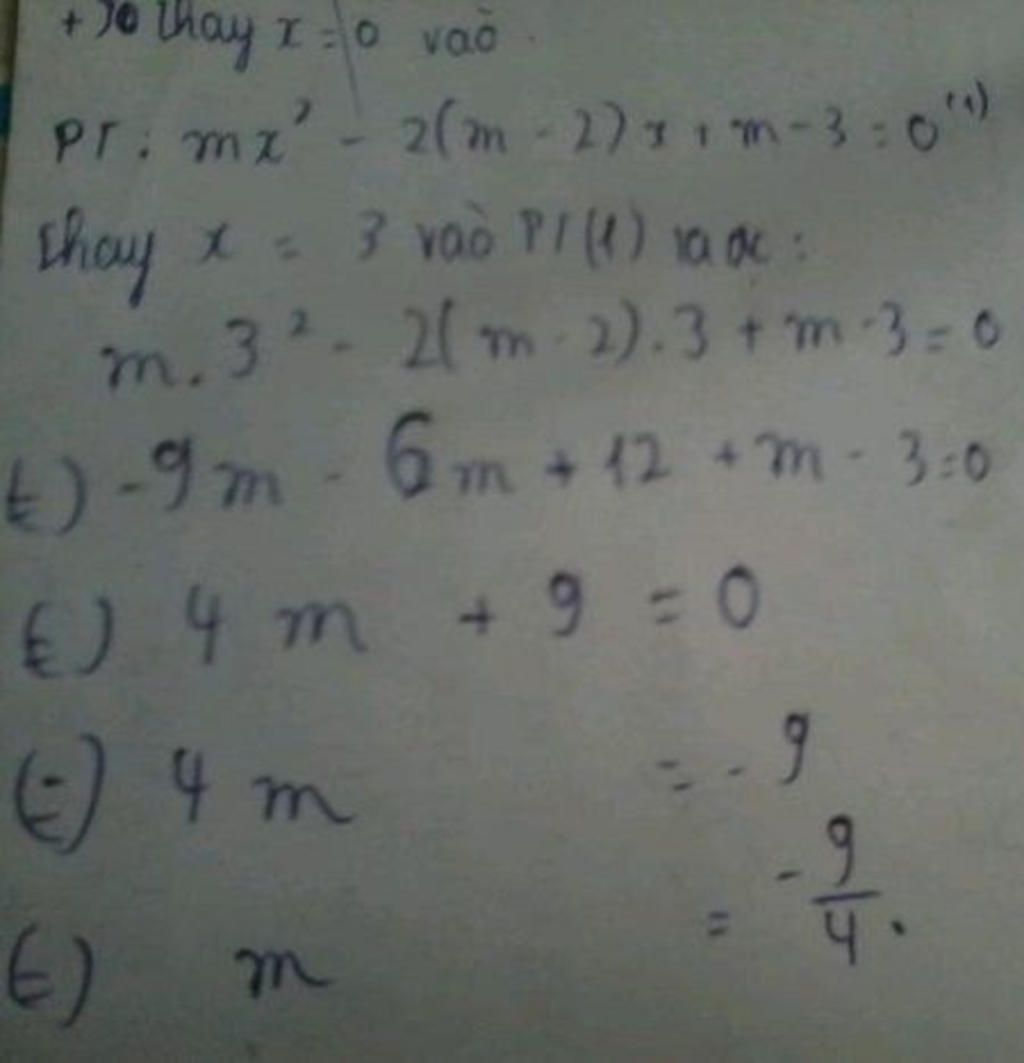 thay x = 0 vào
PT: mx² - 2(m - 2)x + m - 3 = 0 (1)
thay x = 3 vào PT (1) ta đc:
m.3² - 2(m - 2).3 + m - 3 = 0
(=) -9m - 6m + 12 + m - 3 = 0
(=) 4m + 9 = 0
(=) 4m = -9
(=) m = -9/4.